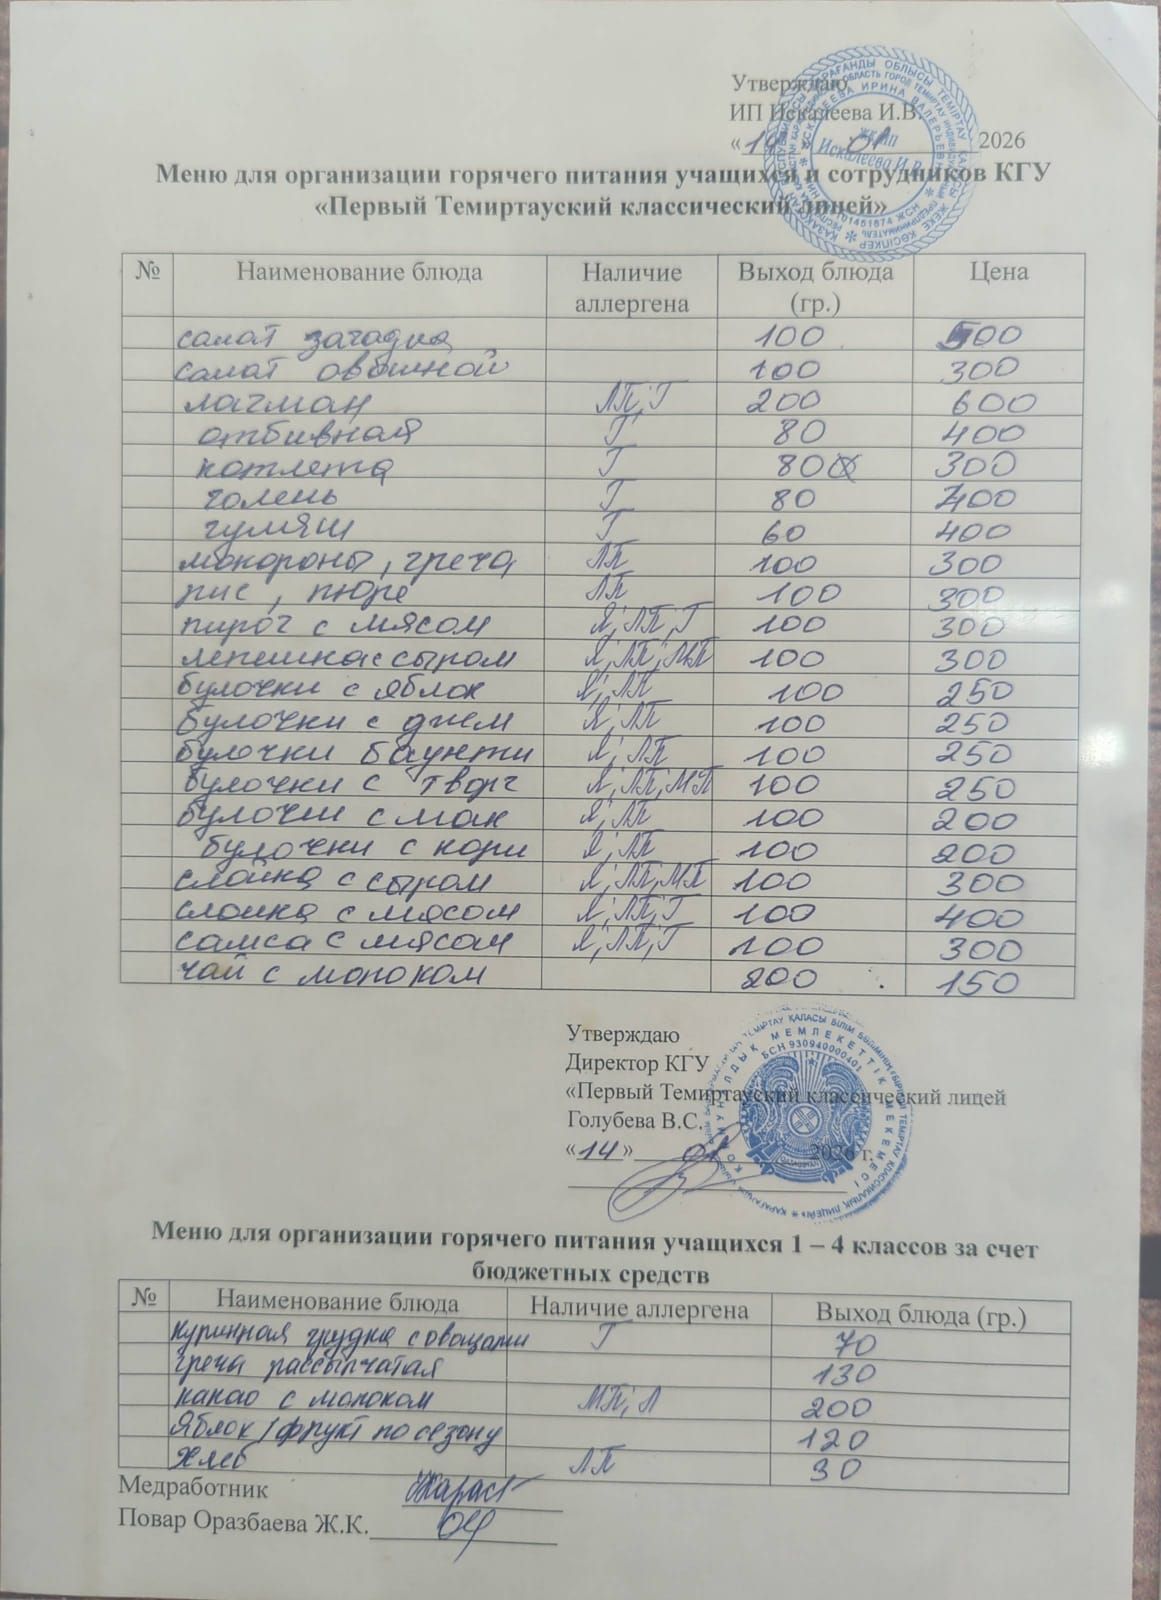 Утверждаю
ИП Искалеева И.В.
«14» 01 2026
Меню для организации горячего питания учащихся и сотрудников КГУ
«Первый Темиртауский классический лицей»
№ Наименование блюда Наличие аллергена Выход блюда (гр.) Цена
салат загадка 100 500
салат овощной 100 300
лагман ЛП, Г 200 600
отбивная Г 80 400
котлета Г 80 300
голень Г 80 400
гуляш Г 60 400
мокороны, греча ЛП 100 300
рис, пюре ЛП 100 300
пирог с мясом Я, ЛП, Г 100 300
лепешка с сыром Я, ЛП, МП 100 300
булочки с яблок Я, ЛП 100 250
булочки с джем Я, ЛП 100 250
булочки баунти Я, ЛП 100 250
булочки с творг Я, ЛП, МП 100 250
булочки с мак Я, ЛП 100 200
булочки с кори Я, ЛП 100 200
слойка с сыром Я, ЛП, МП 100 300
слойка с мясом Я, ЛП, Г 100 400
самса с мясом Я, ЛП, Г 100 300
чай с молоком 200 150
Утверждаю
Директор КГУ
«Первый Темиртауский классический лицей
Голубева В.С.
«14» 01 2026 г.
БСН 930940000401
Меню для организации горячего питания учащихся 1 – 4 классов за счет
бюджетных средств
№ Наименование блюда Наличие аллергена Выход блюда (гр.)
куринная грудка с овощами Г 70
греча рассыпчатая 130
какао с молоком МП, Л 200
Яблок/фрукт по сезону 120
Хлеб ЛП 30
Медработник
Повар Оразбаева Ж.К.